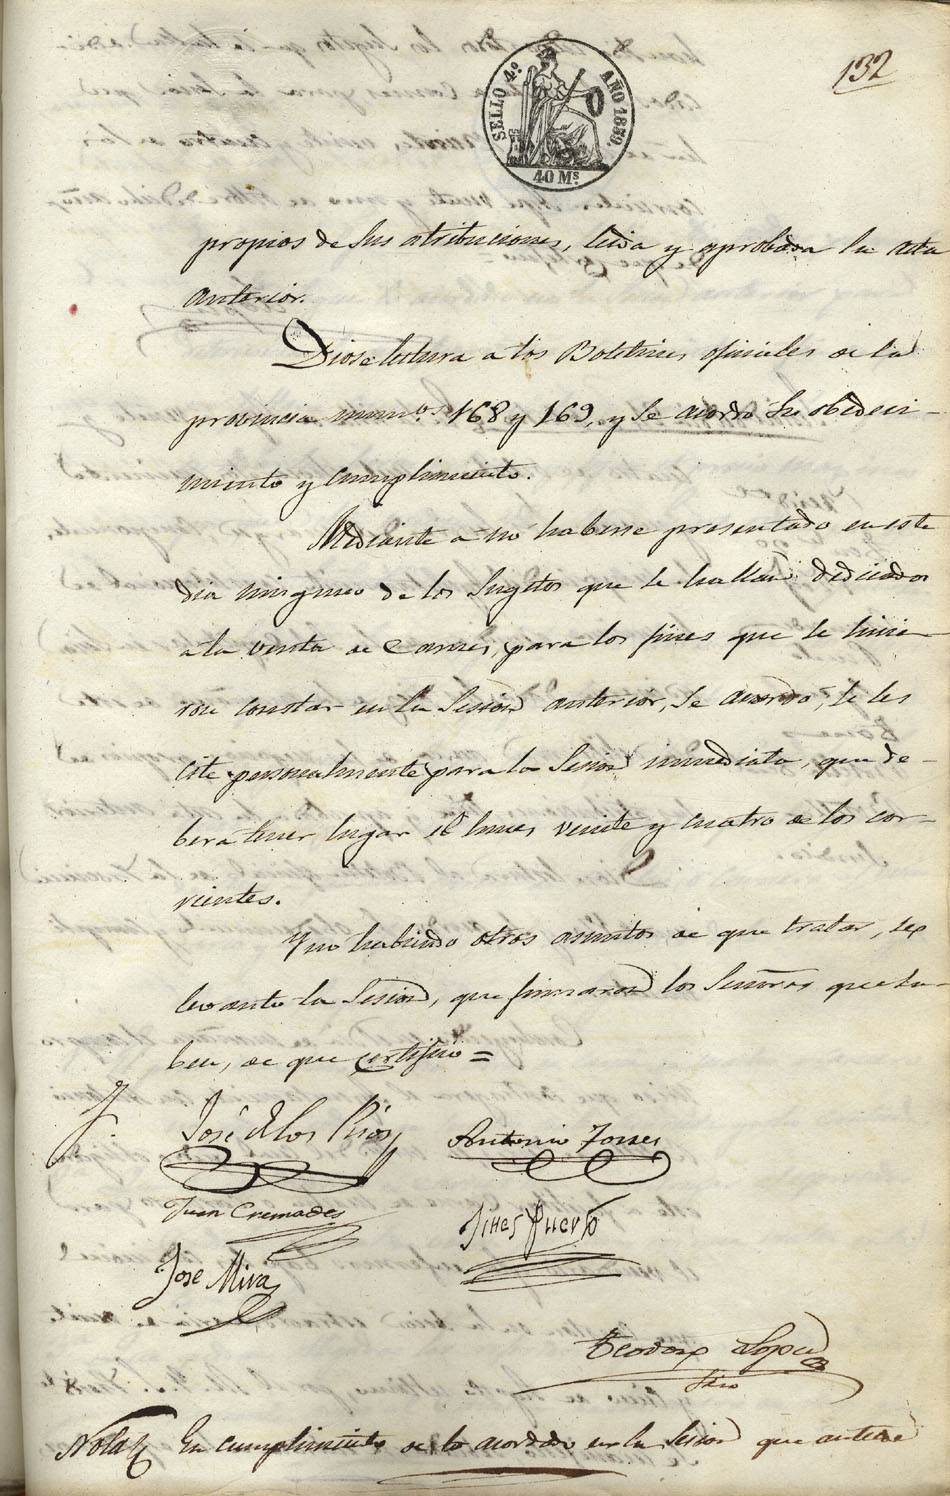 132
SELLO 4.º AÑO 1859.
40 Ms.
propios de sus atribuciones, leida y aprobada la acta
anterior.
Diose lectura a los Boletines oficiales de la
provincia numos. 168 y 169, y se acordó su obedeci-
miento y cumplimiento.
Mediante a no haberse presentado en este
dia ninguno de los sugetos que se hallan dedicados
a la venta de Carnes, para los fines que se hicie-
ron constar en la Sesion anterior, se acordó, se les
cite personalmente para la Sesion inmediata, que de-
berá tener lugar el lunes veinte y cuatro de los cor-
rientes.
Y no habiendo otros asuntos de que tratar, se
levantó la Sesion, que firmaron los Señores que sa-
ben, de que certifico =
José de los Rios
Antonio Torres
Juan Cremades
Jines Puerto
Jose Mira
Teodoro Lopez
Srio
Nota En cumplimiento de lo acordado en la Sesion que antecede